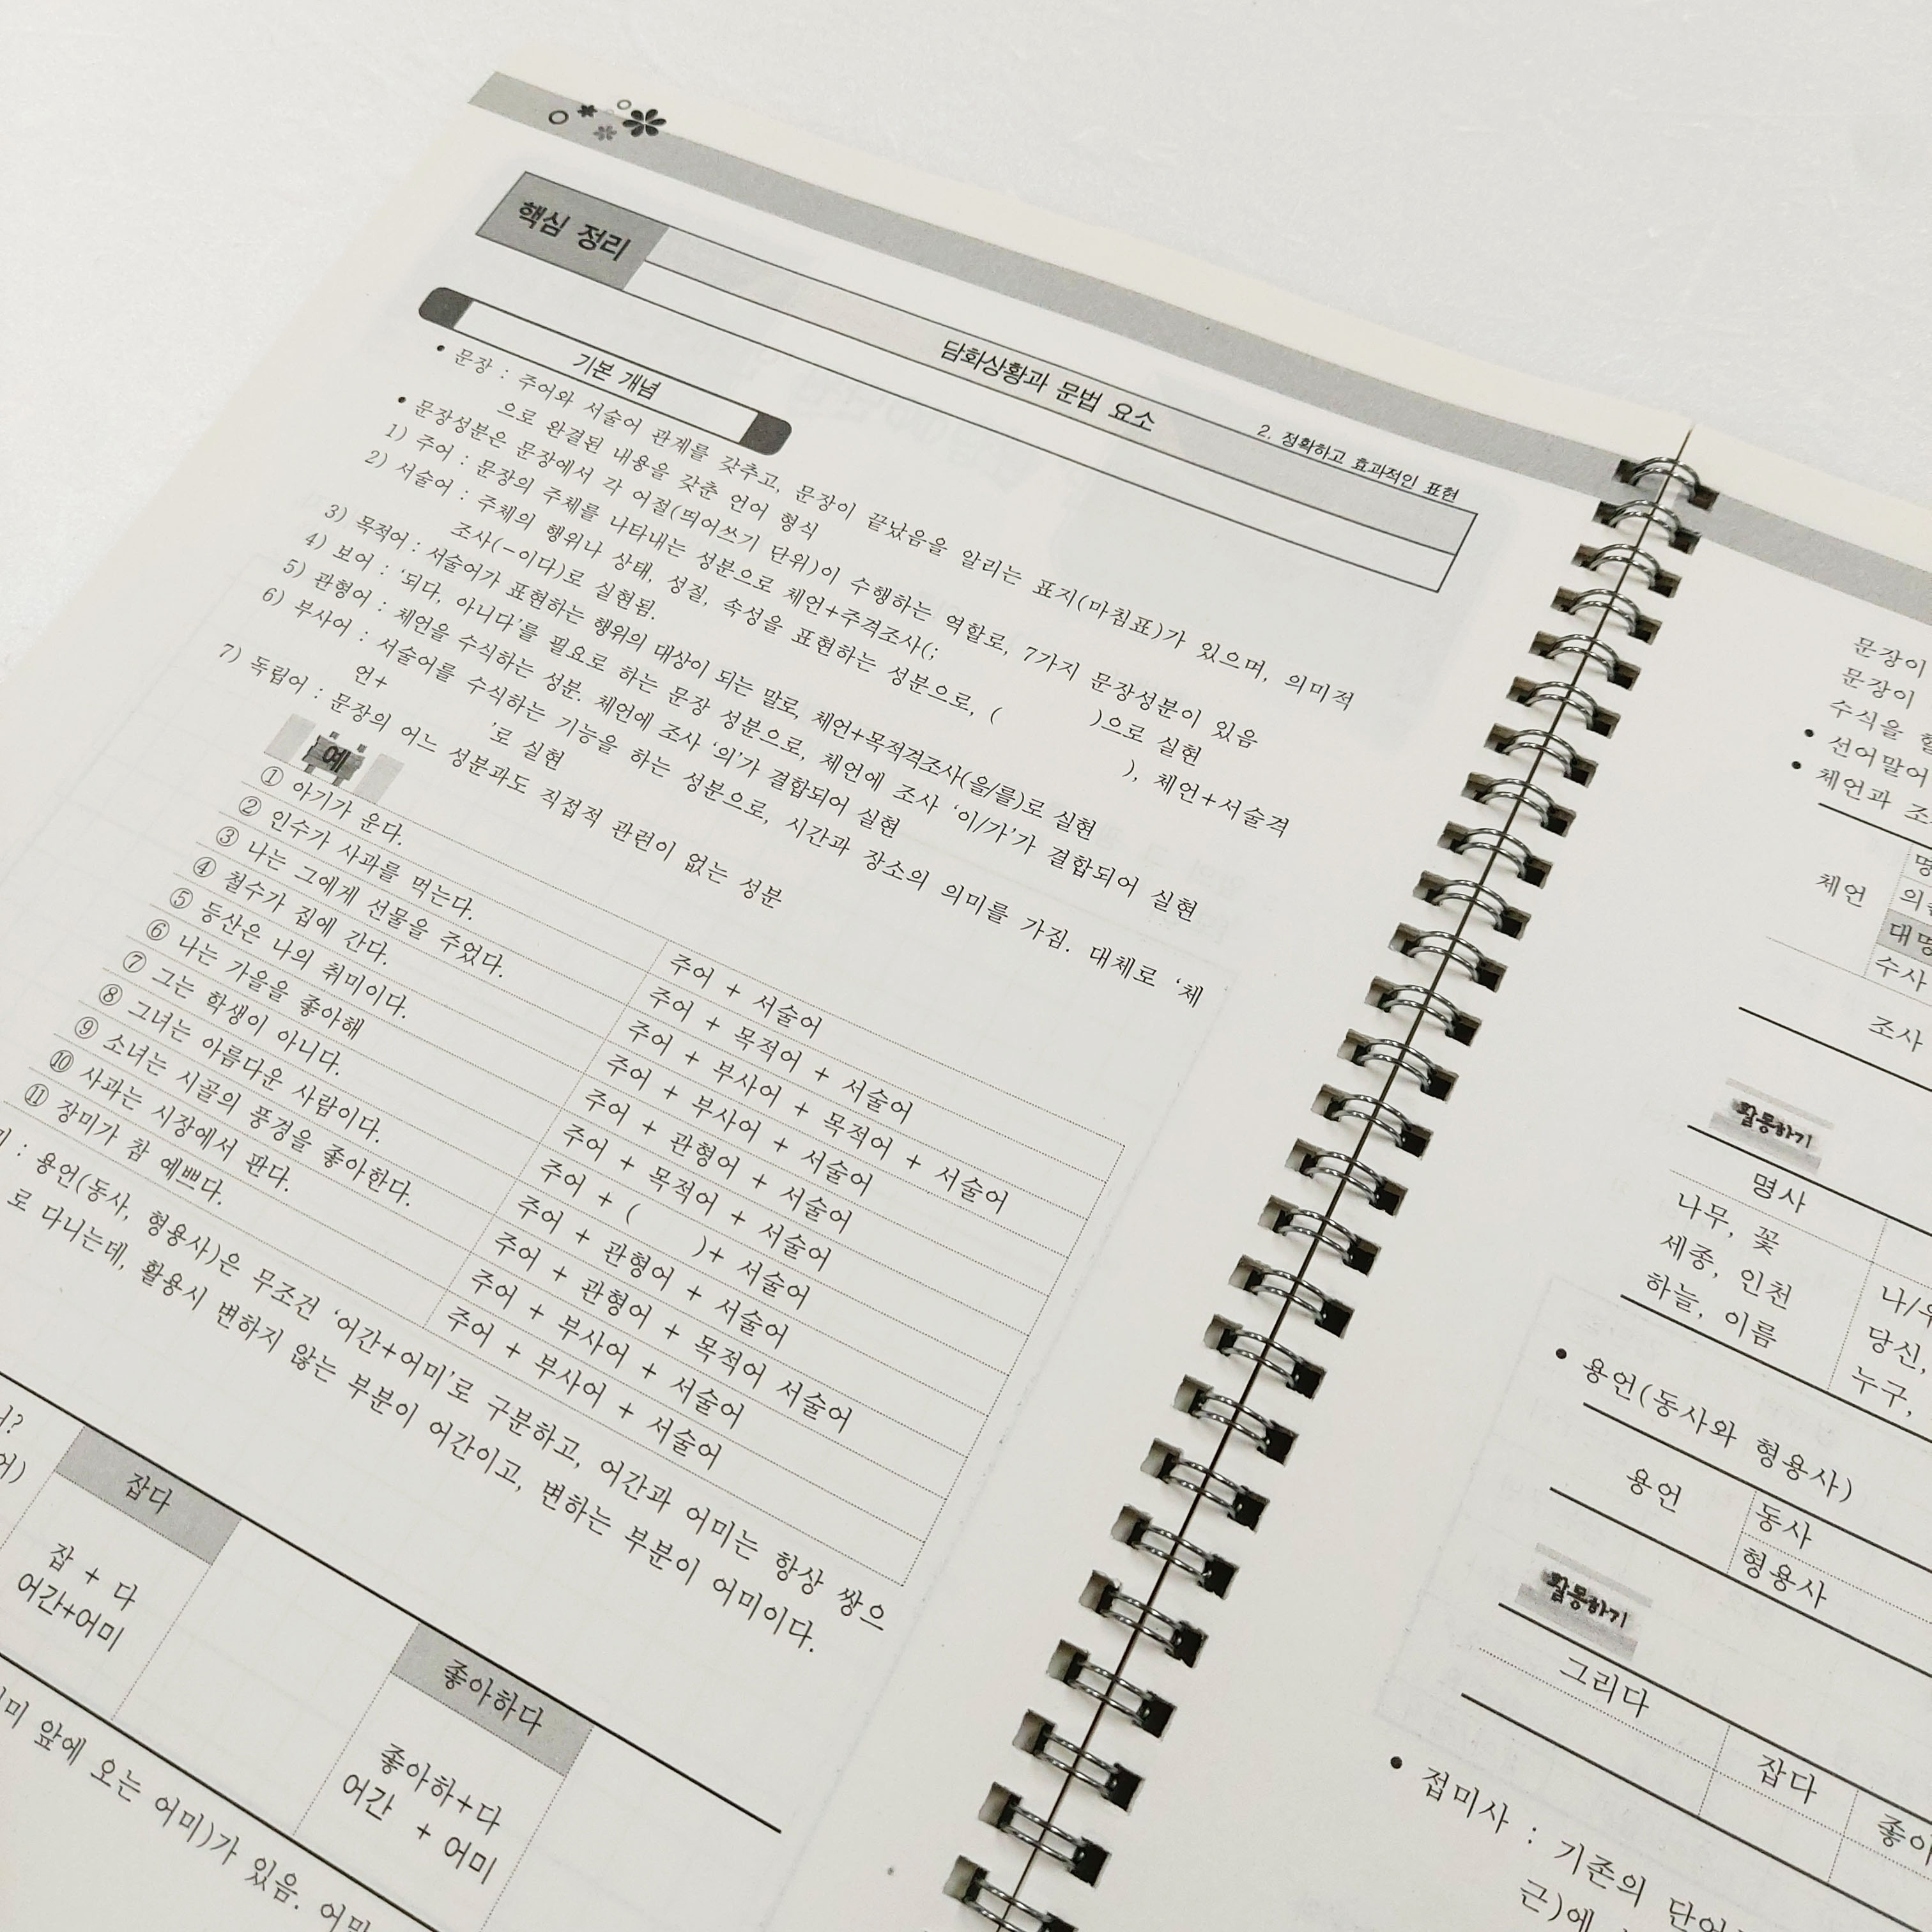 핵심 정리
담화상황과 문법 요소
2. 정확하고 효과적인 표현
기본 개념
• 문장 : 주어와 서술어 관계를 갖추고, 문장이 끝났음을 알리는 표지(마침표)가 있으며, 의미적
으로 완결된 내용을 갖춘 언어 형식
• 문장성분은 문장에서 각 어절(띄어쓰기 단위)이 수행하는 역할로, 7가지 문장성분이 있음
1) 주어 : 문장의 주체를 나타내는 성분으로 체언+주격조사(; )으로 실현
2) 서술어 : 주체의 행위나 상태, 성질, 속성을 표현하는 성분으로, ( ), 체언+서술격
조사(-이다)로 실현됨.
3) 목적어 : 서술어가 표현하는 행위의 대상이 되는 말로, 체언+목적격조사(을/를)로 실현
4) 보어 : '되다, 아니다'를 필요로 하는 문장 성분으로, 체언에 조사 '이/가'가 결합되어 실현
5) 관형어 : 체언을 수식하는 성분. 체언에 조사 '의'가 결합되어 실현
6) 부사어 : 서술어를 수식하는 기능을 하는 성분으로, 시간과 장소의 의미를 가짐. 대체로 '체
언+ '로 실현
7) 독립어 : 문장의 어느 성분과도 직접적 관련이 없는 성분
예
① 아기가 운다. 주어 + 서술어
② 인수가 사과를 먹는다. 주어 + 목적어 + 서술어
③ 나는 그에게 선물을 주었다. 주어 + 부사어 + 목적어 + 서술어
④ 철수가 집에 간다. 주어 + 부사어 + 서술어
⑤ 등산은 나의 취미이다. 주어 + 관형어 + 서술어
⑥ 나는 가을을 좋아해 주어 + 목적어 + 서술어
⑦ 그는 학생이 아니다. 주어 + ( )+ 서술어
⑧ 그녀는 아름다운 사람이다. 주어 + 관형어 + 서술어
⑨ 소녀는 시골의 풍경을 좋아한다. 주어 + 관형어 + 목적어 서술어
⑩ 사과는 시장에서 판다. 주어 + 부사어 + 서술어
⑪ 장미가 참 예쁘다. 주어 + 부사어 + 서술어
: 용언(동사, 형용사)은 무조건 '어간+어미'로 구분하고, 어간과 어미는 항상 쌍으
로 다니는데, 활용시 변하지 않는 부분이 어간이고, 변하는 부분이 어미이다.
잡다
좋아하다
잡 + 다
어간+어미
좋아하+다
어간 + 어미
앞에 오는 어미)가 있음.
문장이
문장이
수식을
• 선어말어
• 체언과 조
체언
수사
조사
활동하기
명사
나무, 꽃
세종, 인천
하늘, 이름
당신,
누구,
• 용언(동사와 형용사)
용언
동사
형용사
활동하기
그리다
잡다
• 접미사 : 기존의 단어
근)에